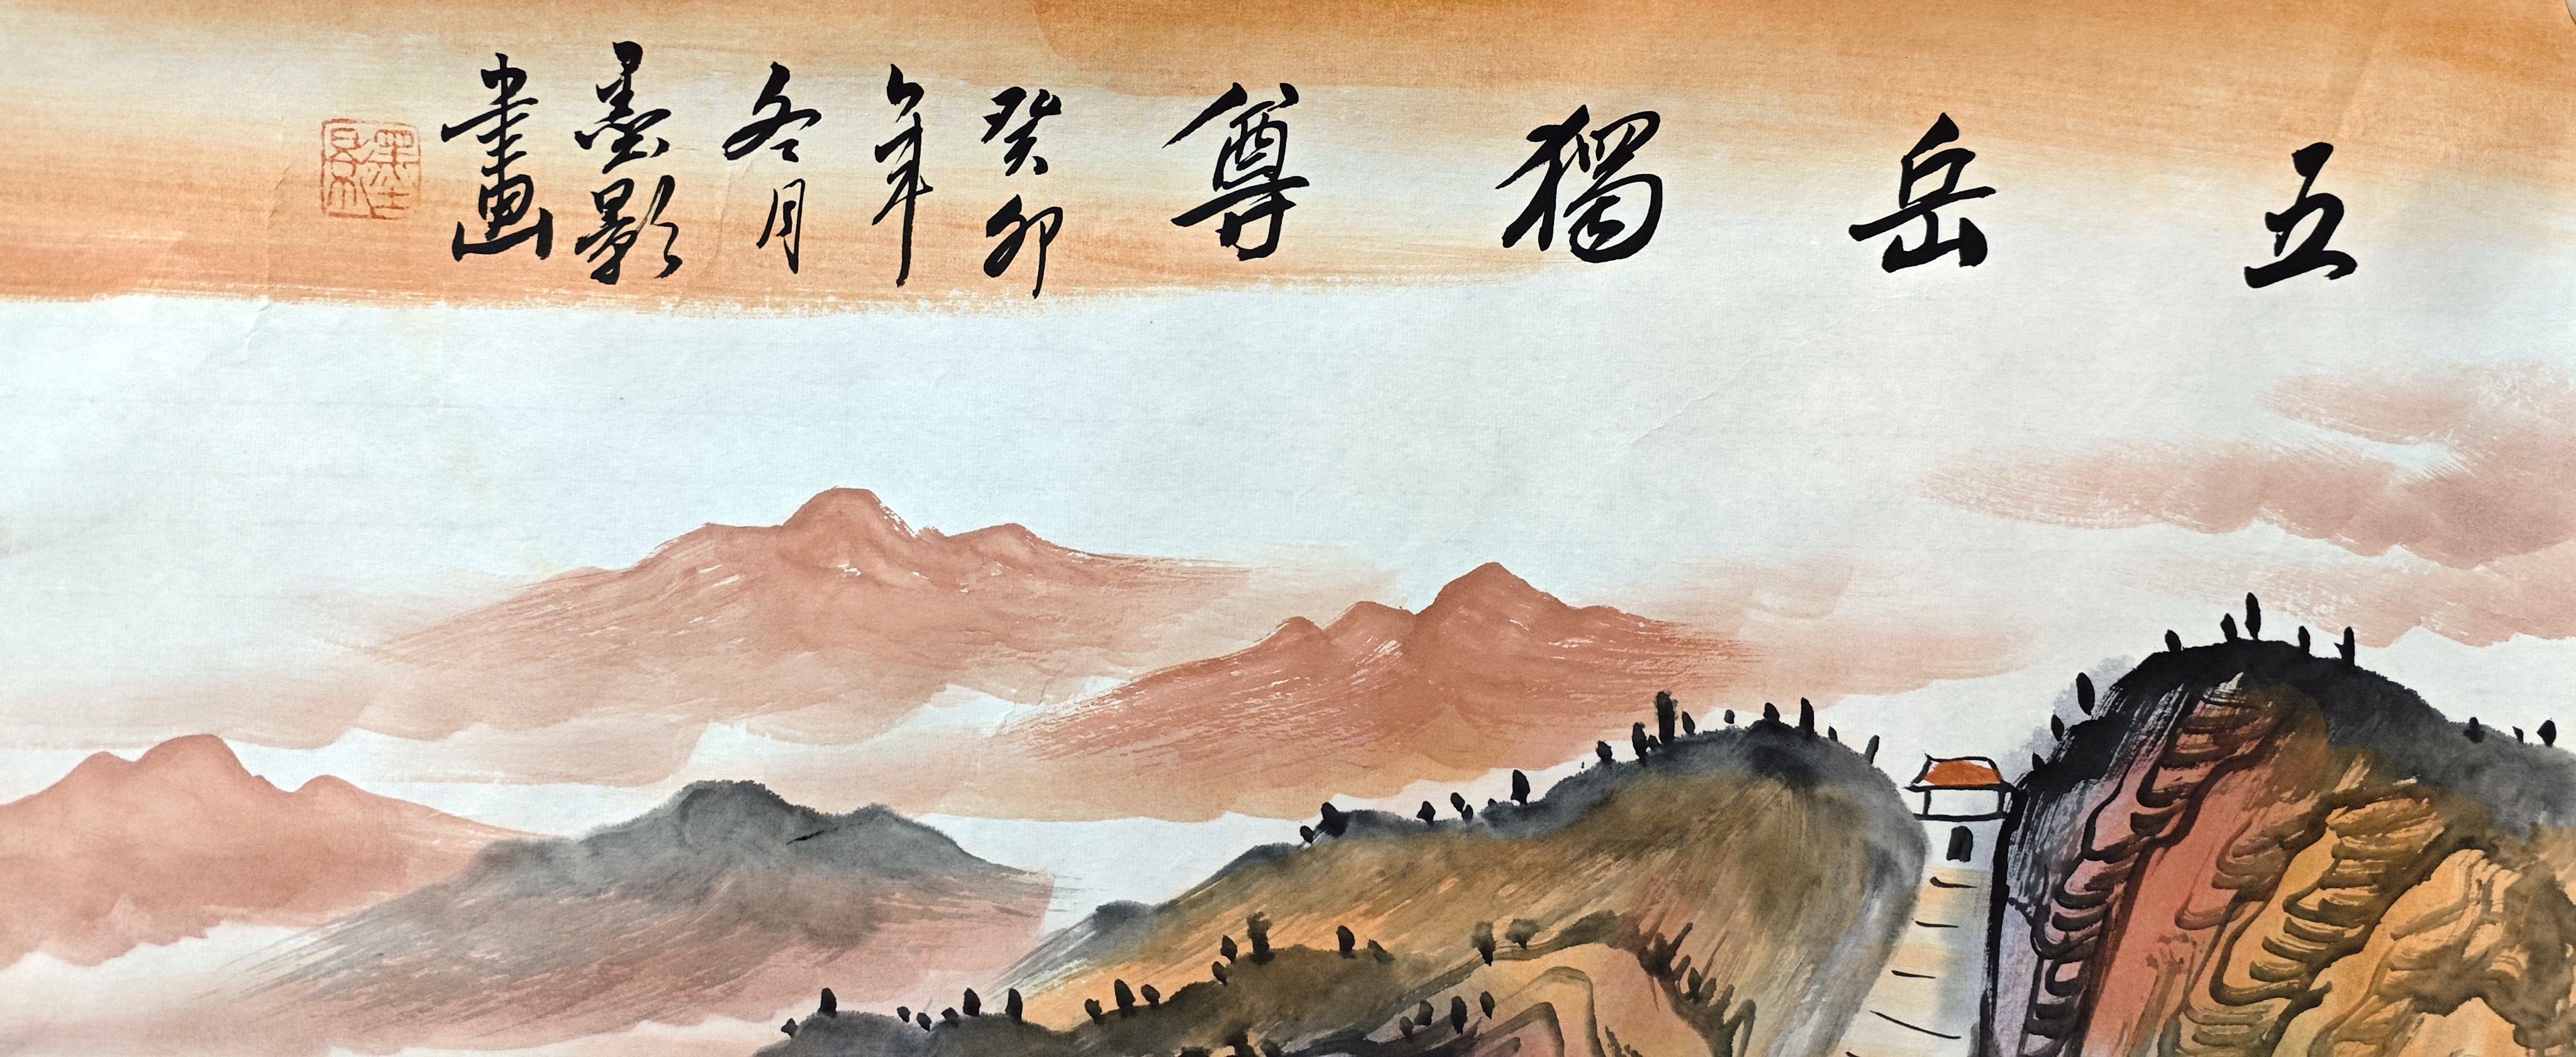 五岳獨尊
癸卯
年
冬月
墨影
書畫
墨影